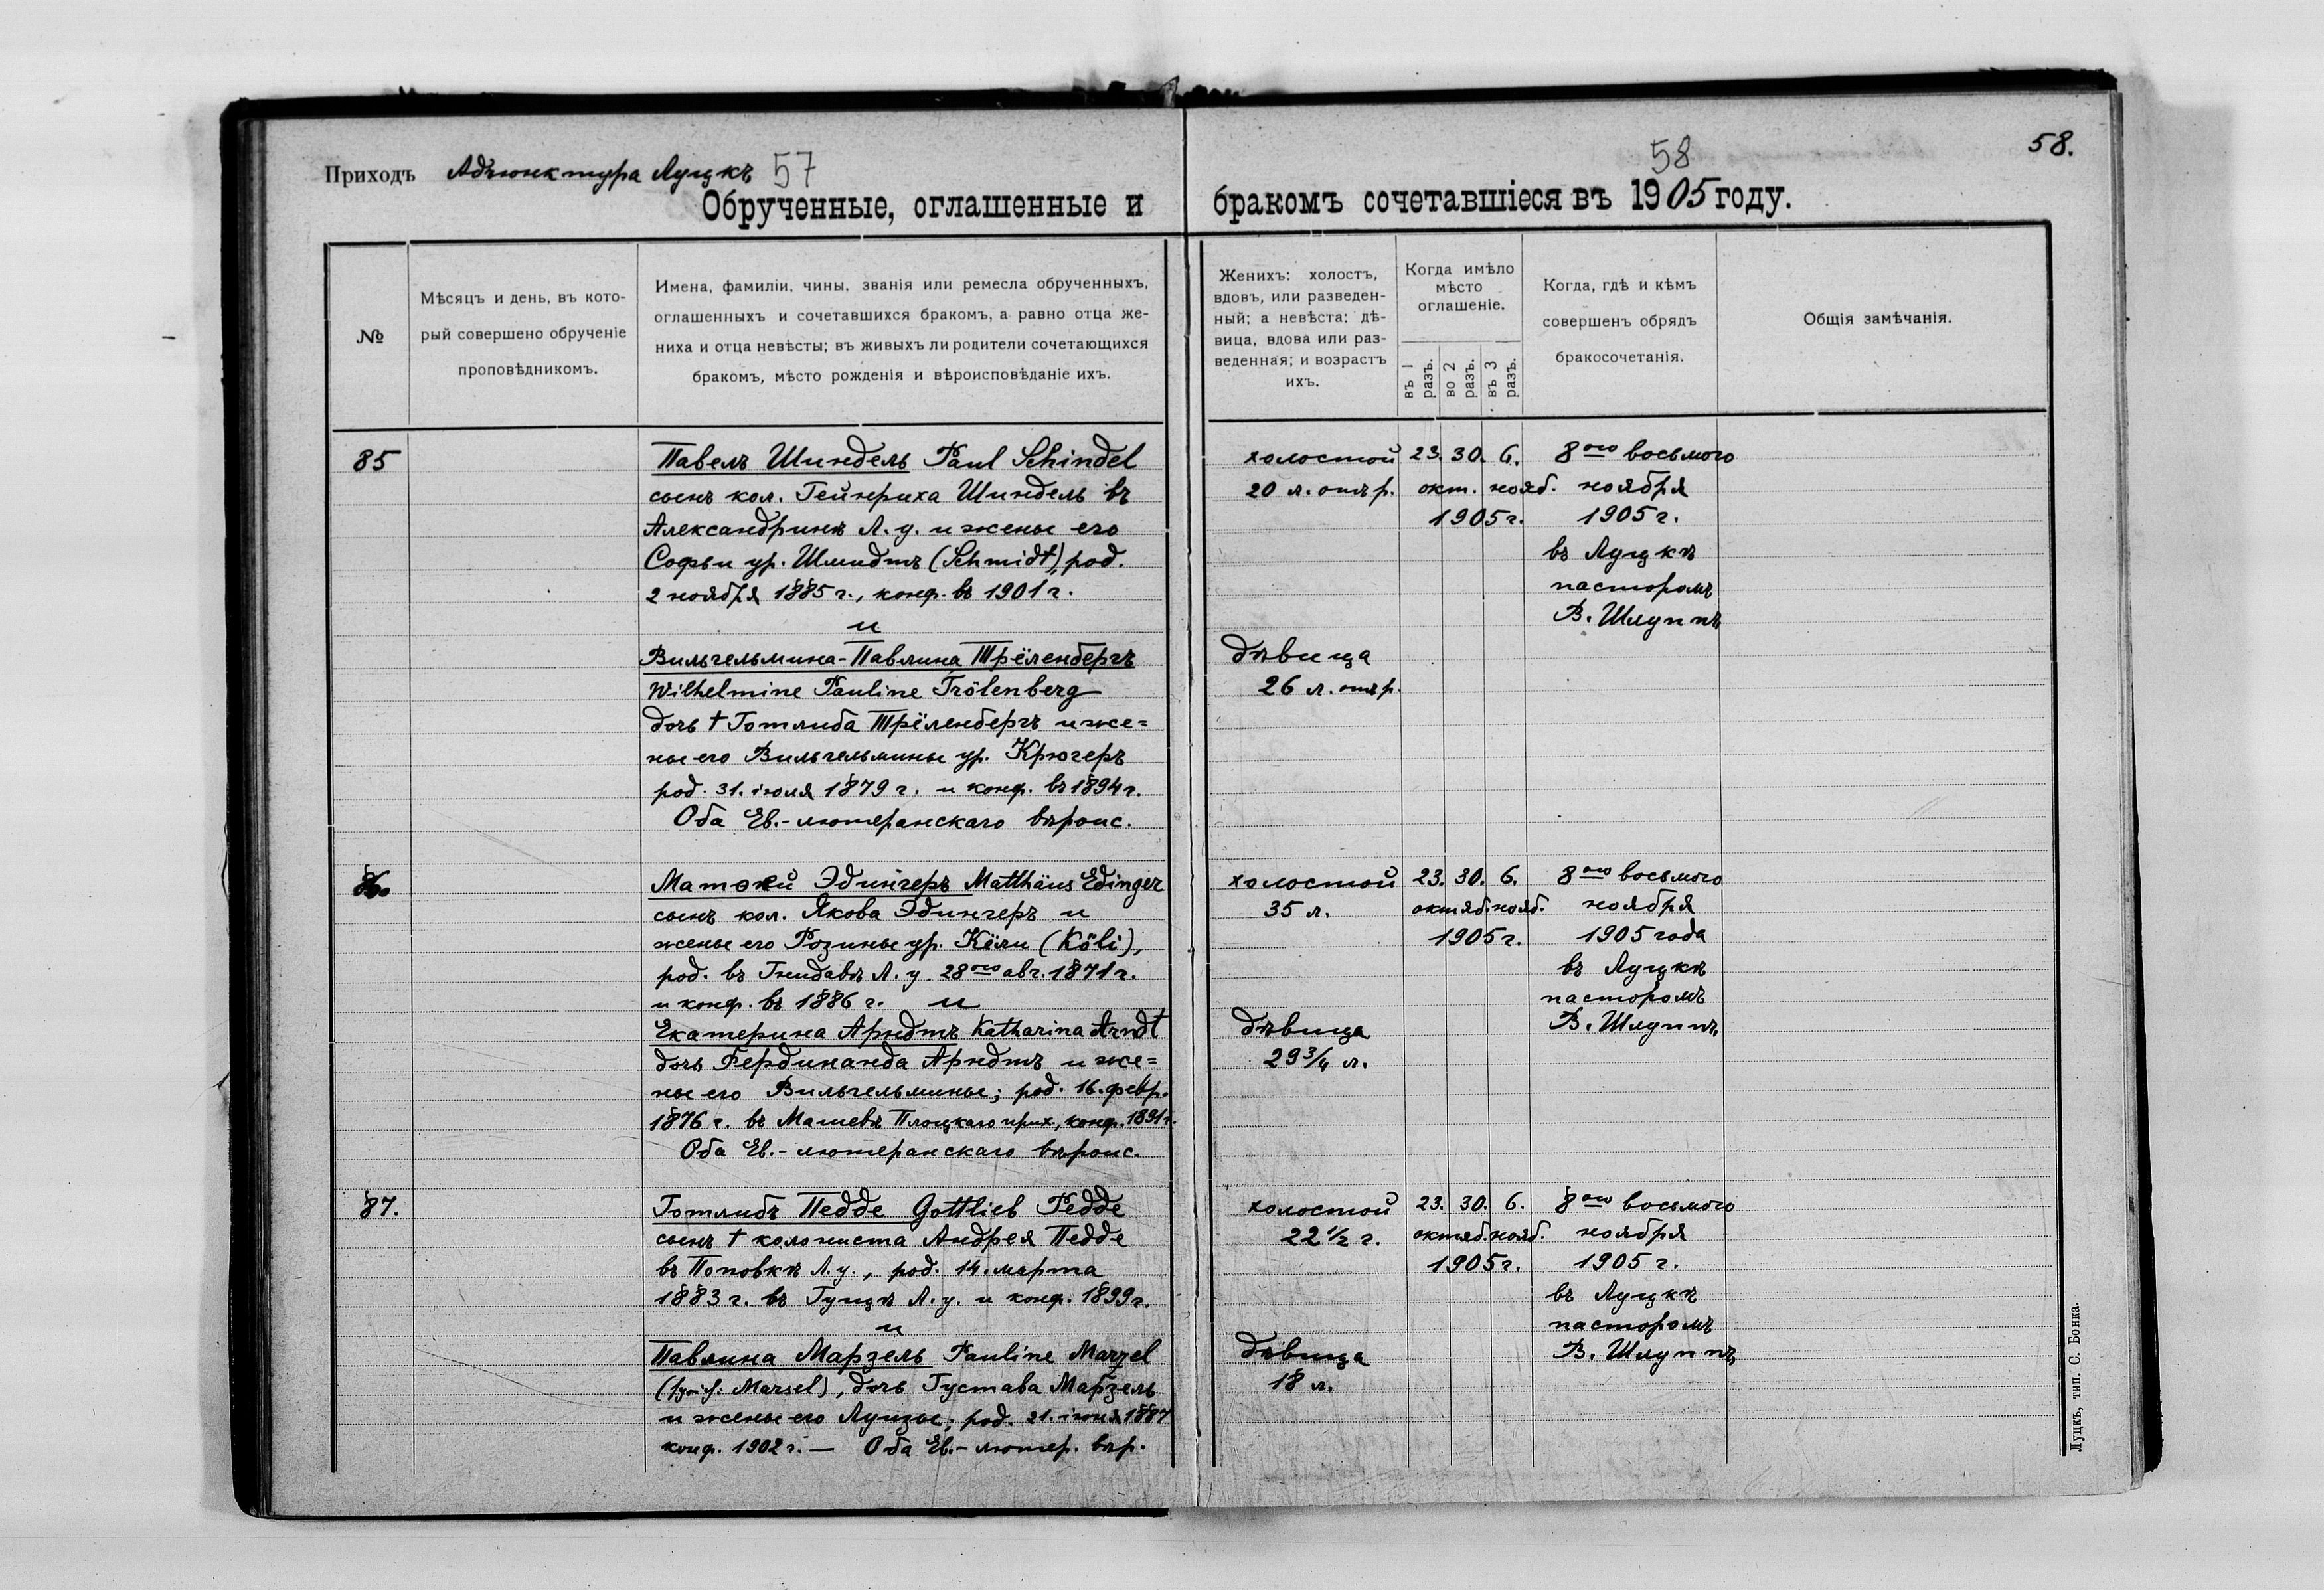 Приходъ Адъюнктура Луцкъ 57
58
58.
Обрученные, оглашенные и бракомъ сочетавшіеся въ 1905 году.
№
Мѣсяцъ и день, въ кото-
рый совершено обрученіе
проповѣдникомъ.
Имена, фамиліи, чины, званія или ремесла обрученныхъ,
оглашенныхъ и сочетавшихся бракомъ, а равно отца же-
ниха и отца невѣсты; въ живыхъ ли родители сочетающихся
бракомъ, мѣсто рожденія и вѣроисповѣданіе ихъ.
Женихъ: холостъ,
вдовъ, или разведен-
ный; а невѣста: дѣ-
вица, вдова или раз-
веденная; и возрастъ
ихъ.
Когда имѣло
мѣсто
оглашеніе.
въ 1 разъ.
во 2 разъ.
въ 3 разъ.
Когда, гдѣ и кѣмъ
совершенъ обрядъ
бракосочетанія.
Общія замѣчанія.
85
Павелъ Шиндель Paul Schindel
сынъ кол. Гейнриха Шиндель въ
Александринѣ Л. у. и жены его
Софьи ур. Шмидтъ (Schmidt), род.
2 ноября 1885 г., конф. въ 1901 г.
и
Вильгельмина-Павлина Трёленбергъ
Wilhelmine Pauline Trölenberg
дочь † Готлиба Трёленбергъ и же=
ны его Вильгельмины ур. Крюгеръ
род. 31. іюля 1879 г. и конф. въ 1894 г.
Оба Ев.-лютеранскаго вѣроис.
холостой
20 л. отъ р.
дѣвица
26 л. отъ р.
23. 30. 6.
окт. нояб.
1905 г.
8ого восьмого
ноября
1905 г.
въ Луцкѣ
пасторомъ
В. Шлуппъ
86.
Матѳей Эдингеръ Matthäus Edinger
сынъ кол. Якова Эдингеръ и
жены его Розины ур. Кёли (Köli),
род. въ Гнидавѣ Л. у. 28ого авг. 1871 г.
и конф. въ 1886 г. и
Екатерина Арндтъ Katharina Arndt
дочь Фердинанда Арндтъ и же=
ны его Вильгельмины; род. 16. февр.
1876 г. въ Машевѣ Плоцкаго прих., конф. 1891 г.
Оба Ев.-лютеранскаго вѣроис.
холостой
35 л.
дѣвица
29 3/4 л.
23. 30. 6.
октяб. нояб.
1905 г.
8ого восьмого
ноября
1905 года
въ Луцкѣ
пасторомъ
В. Шлуппъ
87.
Готлибъ Педде Gottlieb Pedde
сынъ † колониста Андрея Педде
въ Поповкѣ Л. у., род. 14. марта
1883 г. въ Гущѣ Л. у. и конф. 1899 г.
и
Павлина Марзель Pauline Marzel
Marsel), дочь Густава Марзель
и жены его Луизы; род. 21. іюня 1887
конф. 1902 г. — Оба Ев.-лютер. вѣр.
холостой
22 1/2 г.
дѣвица
18 л.
23. 30. 6.
октяб. нояб.
1905 г.
8ого восьмого
ноября
1905 г.
въ Луцкѣ
пасторомъ
В. Шлуппъ
Луцкъ, тип. С. Бонка.